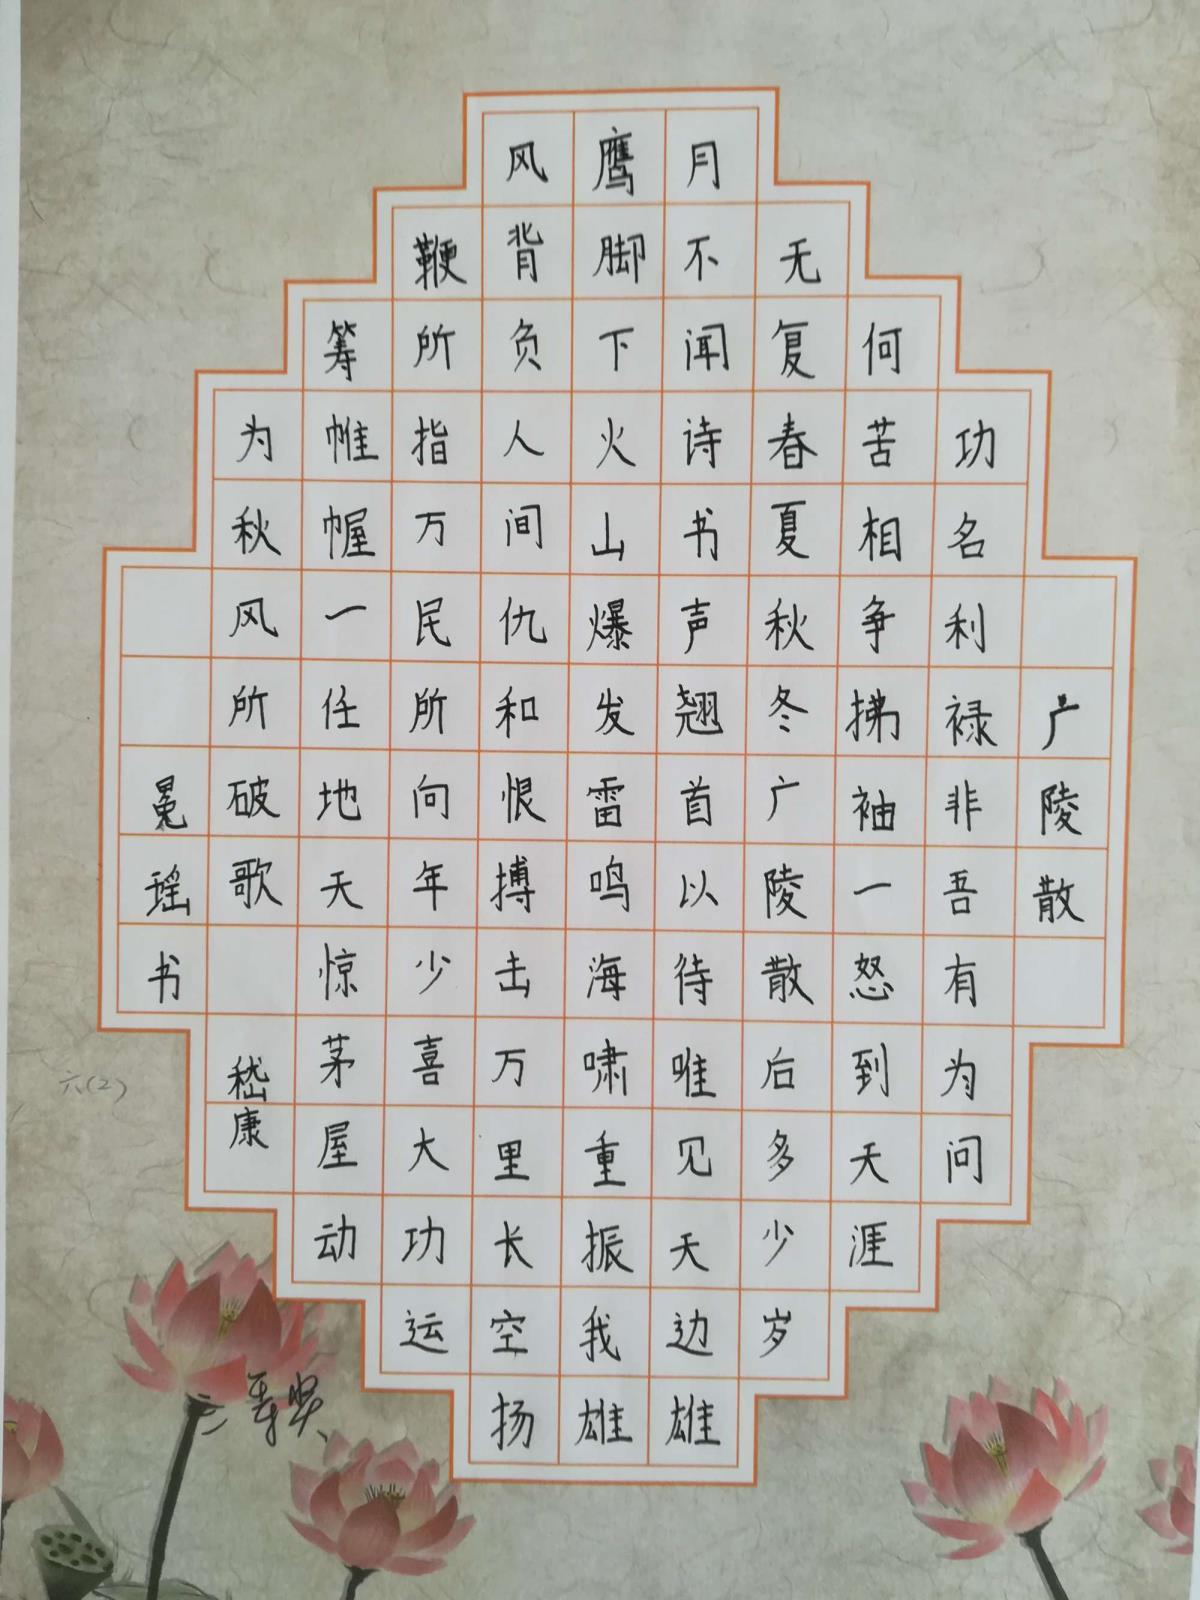 广陵散
功名利禄非吾有为问
何苦相争拂袖一怒到天涯
无复春夏秋冬广陵散后多少岁
月不闻诗书声翘首以待唯见天边雄
鹰脚下火山爆发雷鸣海啸重振我雄
风背负人间仇和恨搏击万里长空扬
鞭所指万民所向年少喜大功运
筹帷幄一任地天惊茅屋动
为秋风所破歌 嵇康
冕瑶书
六(2)
三等奖